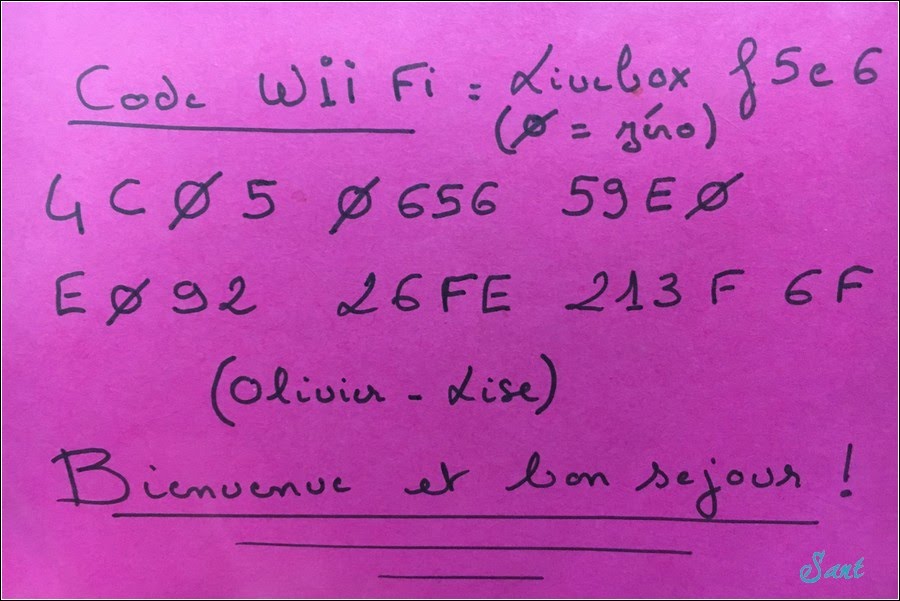 Code WiiFi = Livebox f5e6
(Ø = zéro)
4CØ5 Ø656 59EØ
EØ92 26FE 213F 6F
(Olivier - Lise)
Bienvenue et bon sejour !
Sant